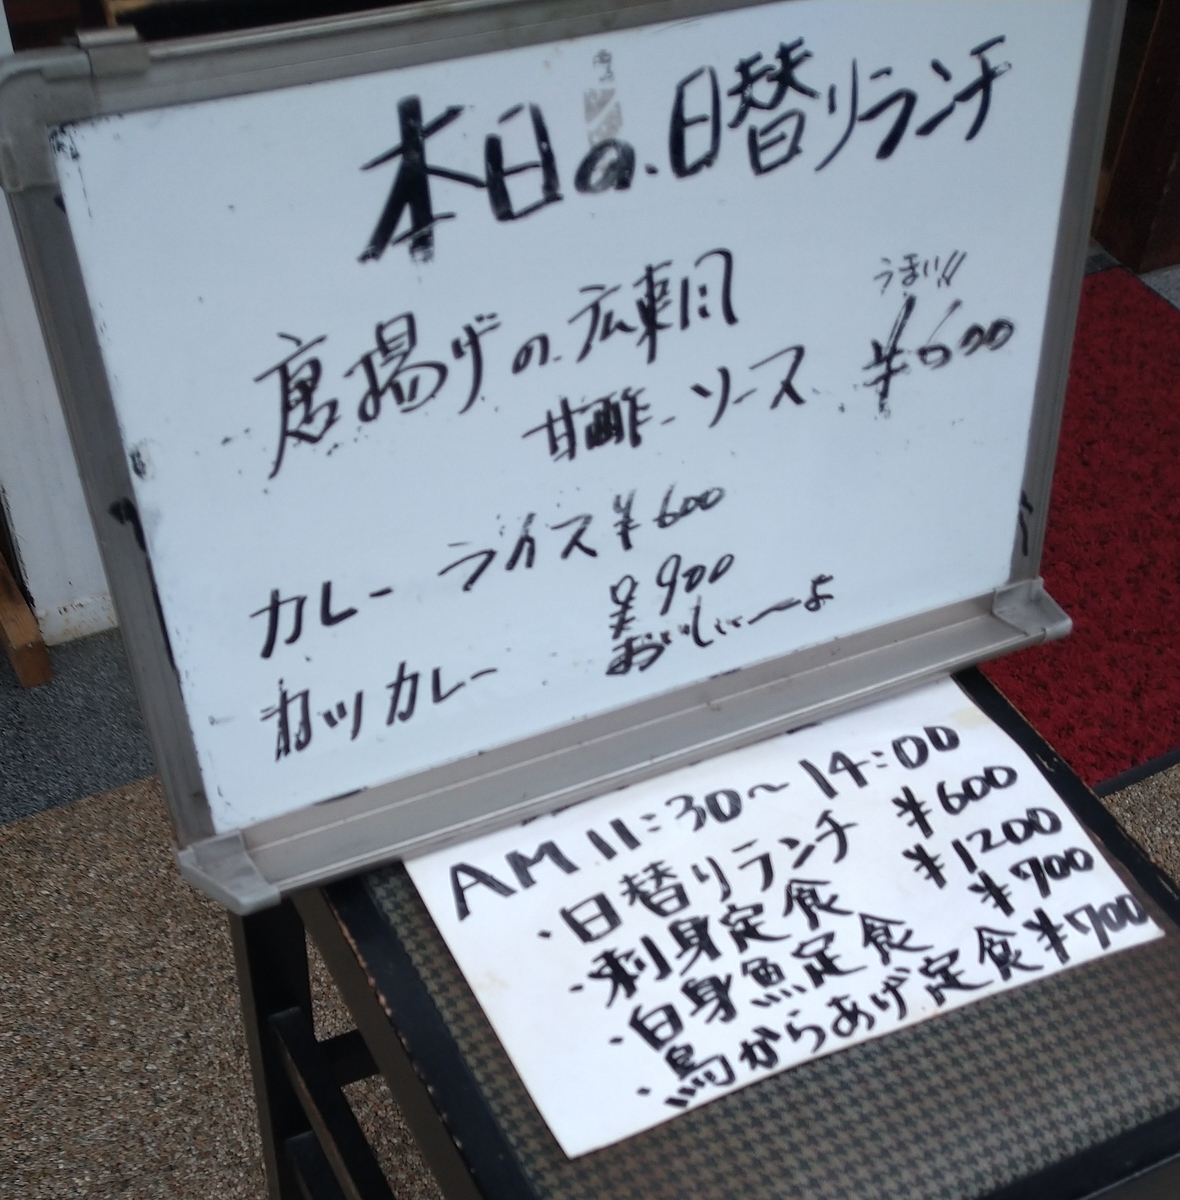 本日の日替リランチ
唐揚げの広東風
うまい!!
甘酢ソース ¥600
カレーライス ¥600
カツカレー ¥900
おいしぃ〜よ
AM 11:30〜14:00
・日替りランチ ¥600
・刺身定食 ¥1200
・白身魚定食 ¥700
・鳥からあげ定食 ¥700